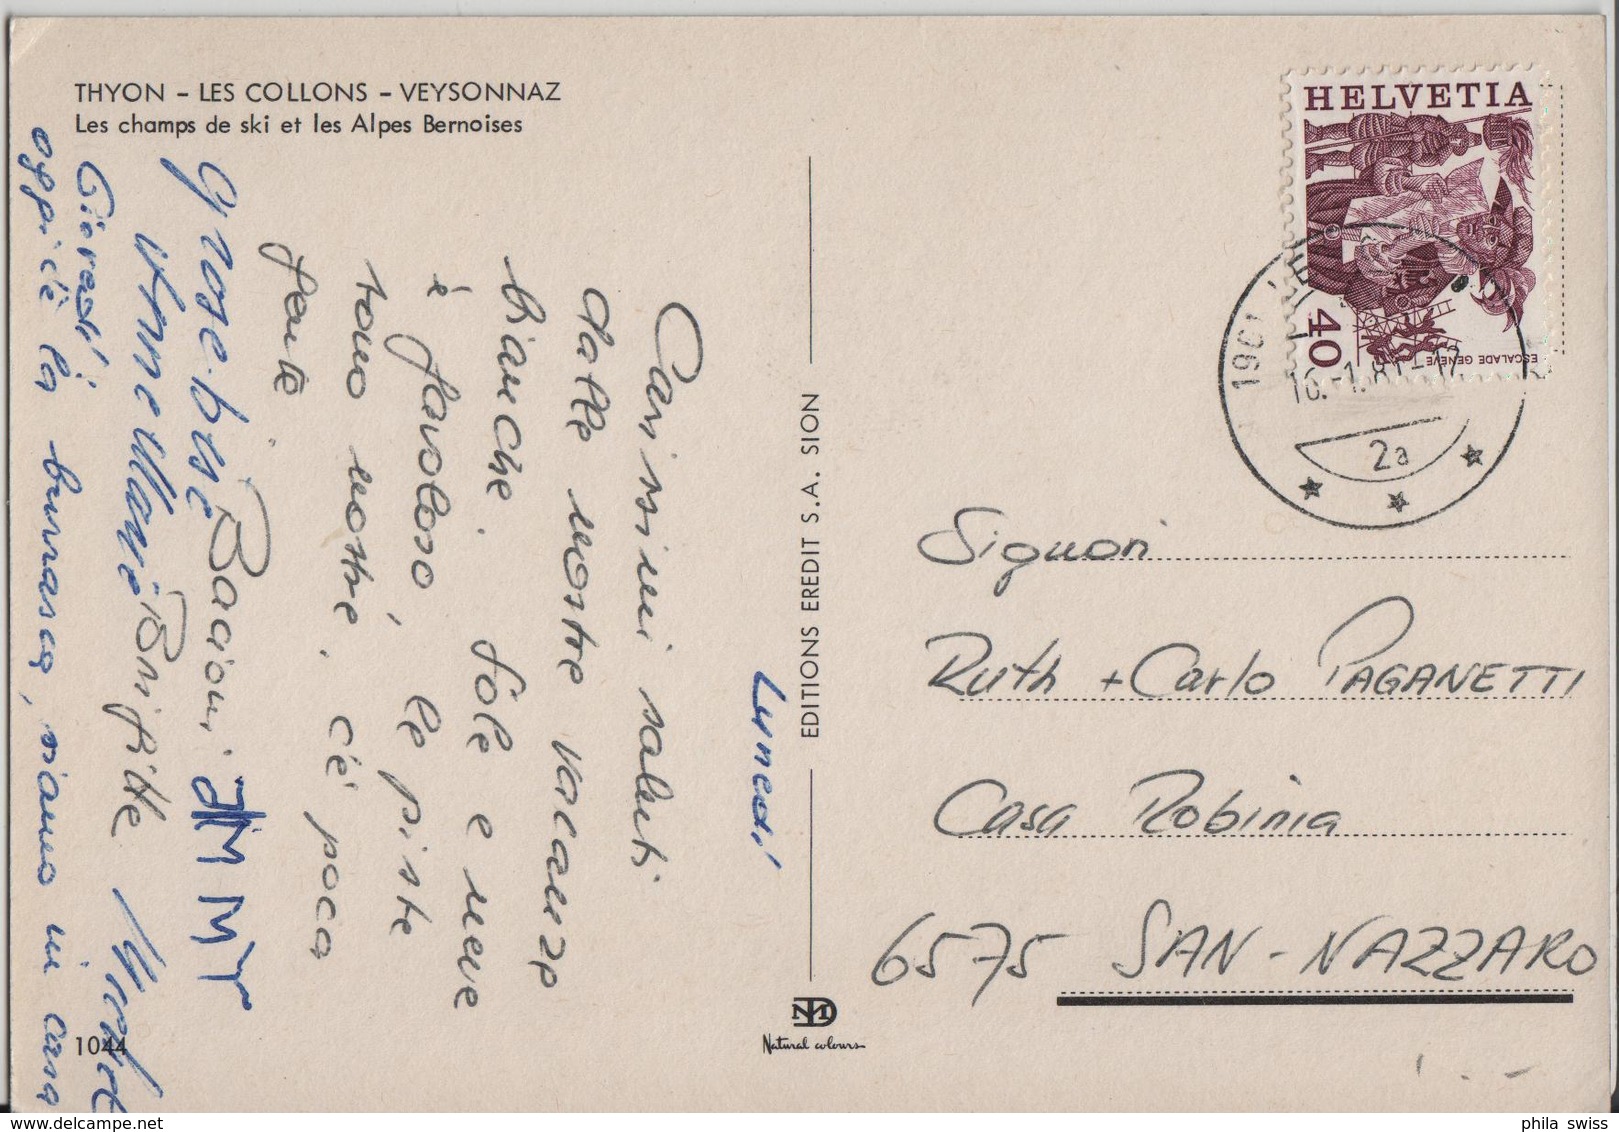 THYON – LES COLLONS – VEYSONNAZ
Les champs de ski et les Alpes Bernoises
Lunedì
Carissimi saluti
dalle nostre vacanze
bianche. Sole e neve
è favoloso, le piste
sono nostre, c'è poca
gente
Bacioni JIMMY
Brigitte
Giovedì
oggi c'è la burrasca, siamo in casa
1044
EDITIONS EREDIT S.A. SION
Natural colours
HELVETIA
40
ESCALADE GENÈVE
16.-1.81-12
2a
Signori
Ruth + Carlo PAGANETTI
Casa Robinia
6575 SAN-NAZZARO
phila swiss